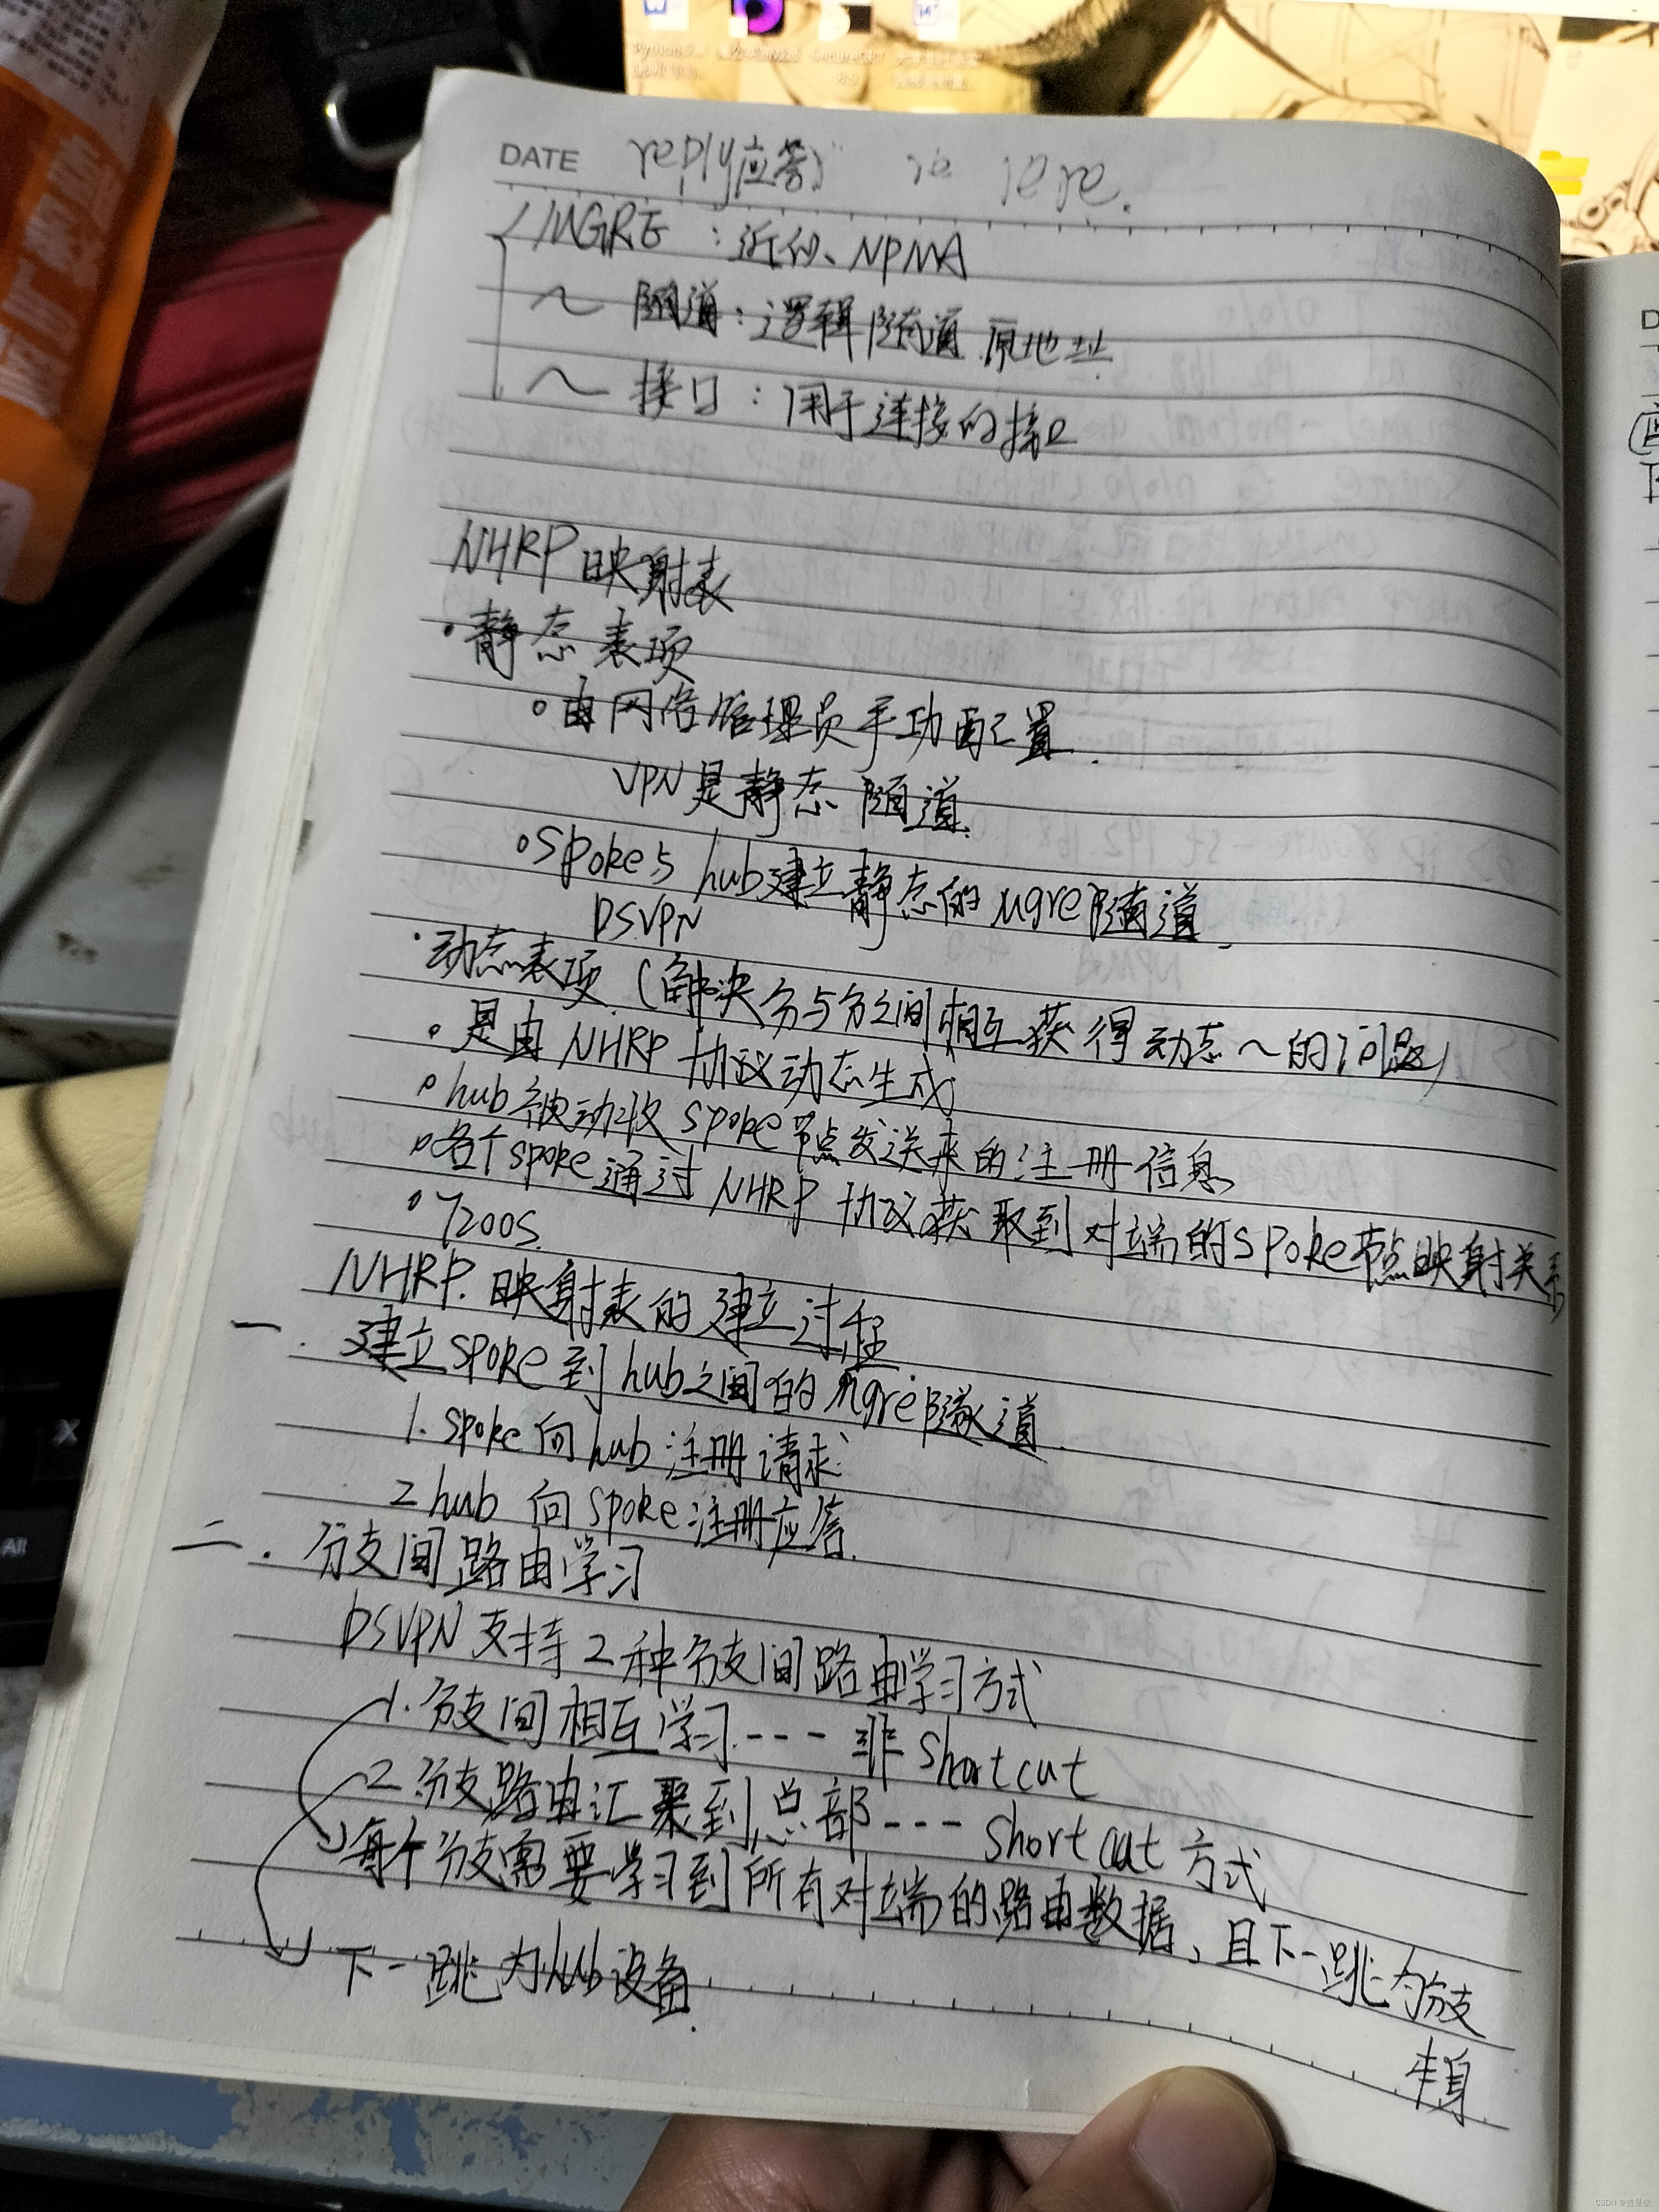 DATE reply(应答) re re re.
MGRE：近似、NPMA
～隧道：逻辑隧道 原地址
～接口：用于连接的接口
NHRP映射表
·静态表项
。由网络管理员手功配置.
VPN是静态隧道.
。spoke与hub建立静态的mgre隧道.
DSVPN
·动态表项.(解决分与分之间相互获得动态～的问题)
。是由NHRP协议动态生成
。hub被动收spoke节点发送来的注册信息
。各个spoke通过NHRP协议获取到对端的spoke节点映射关系
。7200s.
NHRP.映射表的建立过程
一.建立spoke到hub之间的mgre隧道.
1.spoke向hub注册请求
2 hub向spoke注册应答.
二.分支间路由学习
DSVPN支持2种分支间路由学习方式
1.分支间相互学习---非shortcut
2.分支路由汇聚到总部---shortcut方式
每个分支需要学习到所有对端的路由数据，且下一跳为分支
本身.
下一跳为hub设备.
All
X